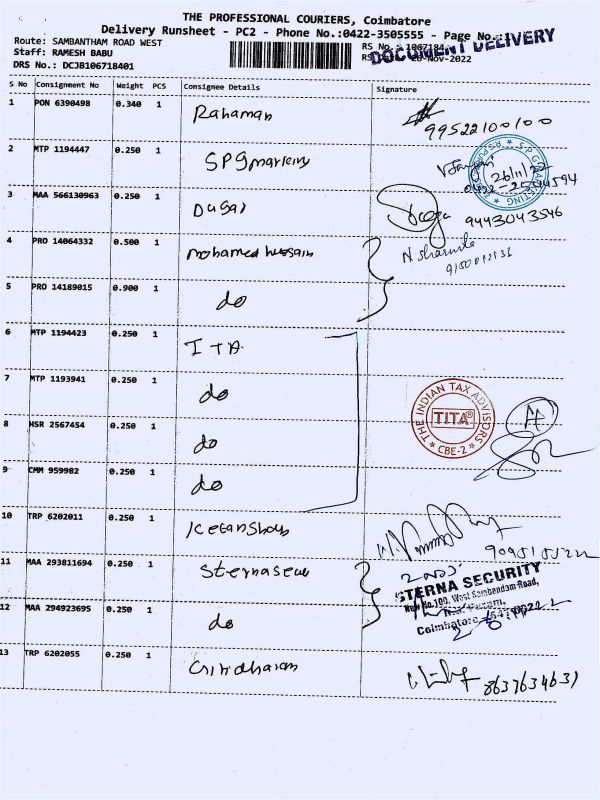 THE PROFESSIONAL COURIERS, Coimbatore
Delivery Runsheet - PC2 - Phone No.:0422-3505555 - Page No.:
Route: SAMBANTHAM ROAD WEST
RS No.: 1067184
DOCUMENT DELIVERY
Staff: RAMESH BABU
26-Nov-2022
DRS No.: DCJB106718401
S No Consignment No Weight PCS Consignee Details Signature
1 PON 6390498 0.340 1 Rahaman
99522100100
2 MTP 1194447 0.250 1 SPG
26/11/22
0422-2544594
3 MAA 566130963 0.250 1 Dugar
9443043546
4 PRO 14064332 0.500 1 mohamed hussain
N. Sharmila
5 PRO 14189015 0.900 1 do
6 MTP 1194423 0.250 1 ITA
7 MTP 1193941 0.250 1 do
THE INDIAN TAX ADVISORS
TITA®
CBE-2
8 HSR 2567454 0.250 1 do
9 CMM 959982 0.250 1 do
10 TRP 6202011 0.250 1 Ketanshah
11 MAA 293811694 0.250 1
STERNA SECURITY
New No.100, West Sambandam Road,
12 MAA 294923695 0.250 1 do
Coimbatore
13 TRP 6202055 0.250 1 Giridharan
8637634631